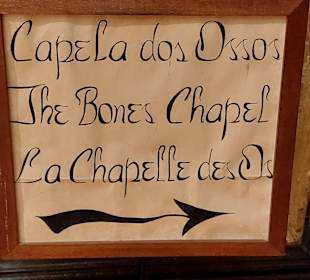 Capela dos Ossos
The Bones Chapel
La Chapelle des Os